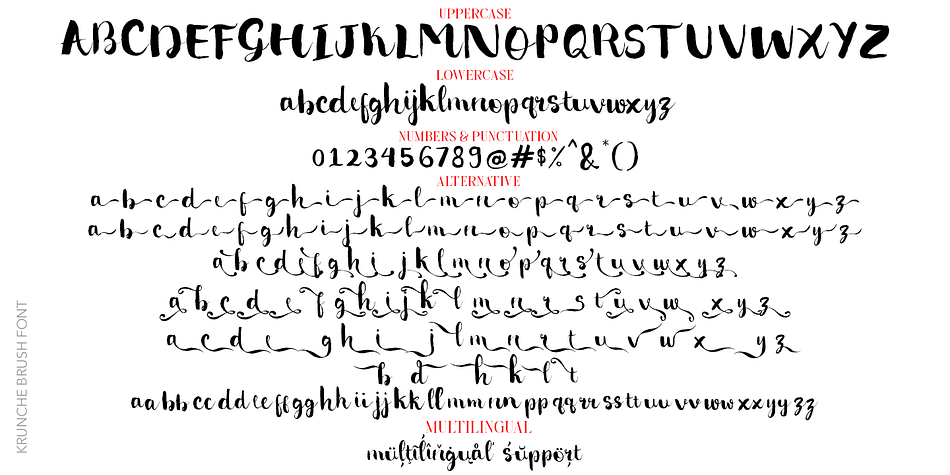 UPPERCASE
ABCDEFGHIJKLMNOPQRSTUVWXYZ
LOWERCASE
abcdefghijklmnopqrstuvwxyz
NUMBERS & PUNCTUATION
0123456789@#$%^&*()
ALTERNATIVE
a b c d e f g h i j k l m n o p q r s t u v w x y z
a b c d e f g h i j k l m n o p q r s t u v w x y z
a b c d e f g h i j k l m n o p q r s t u v w x y z
a b c d e f g h i j k l m n r s t u v w x y z
a c d e g h i j l m n r t u v w x y z
b d h k l t
aa bb cc dd ee ff gg hh ii jj kk ll mm nn pp qq rr ss tt uu vv ww xx yy zz
MULTILINGUAL
KRUNCHE BRUSH FONT